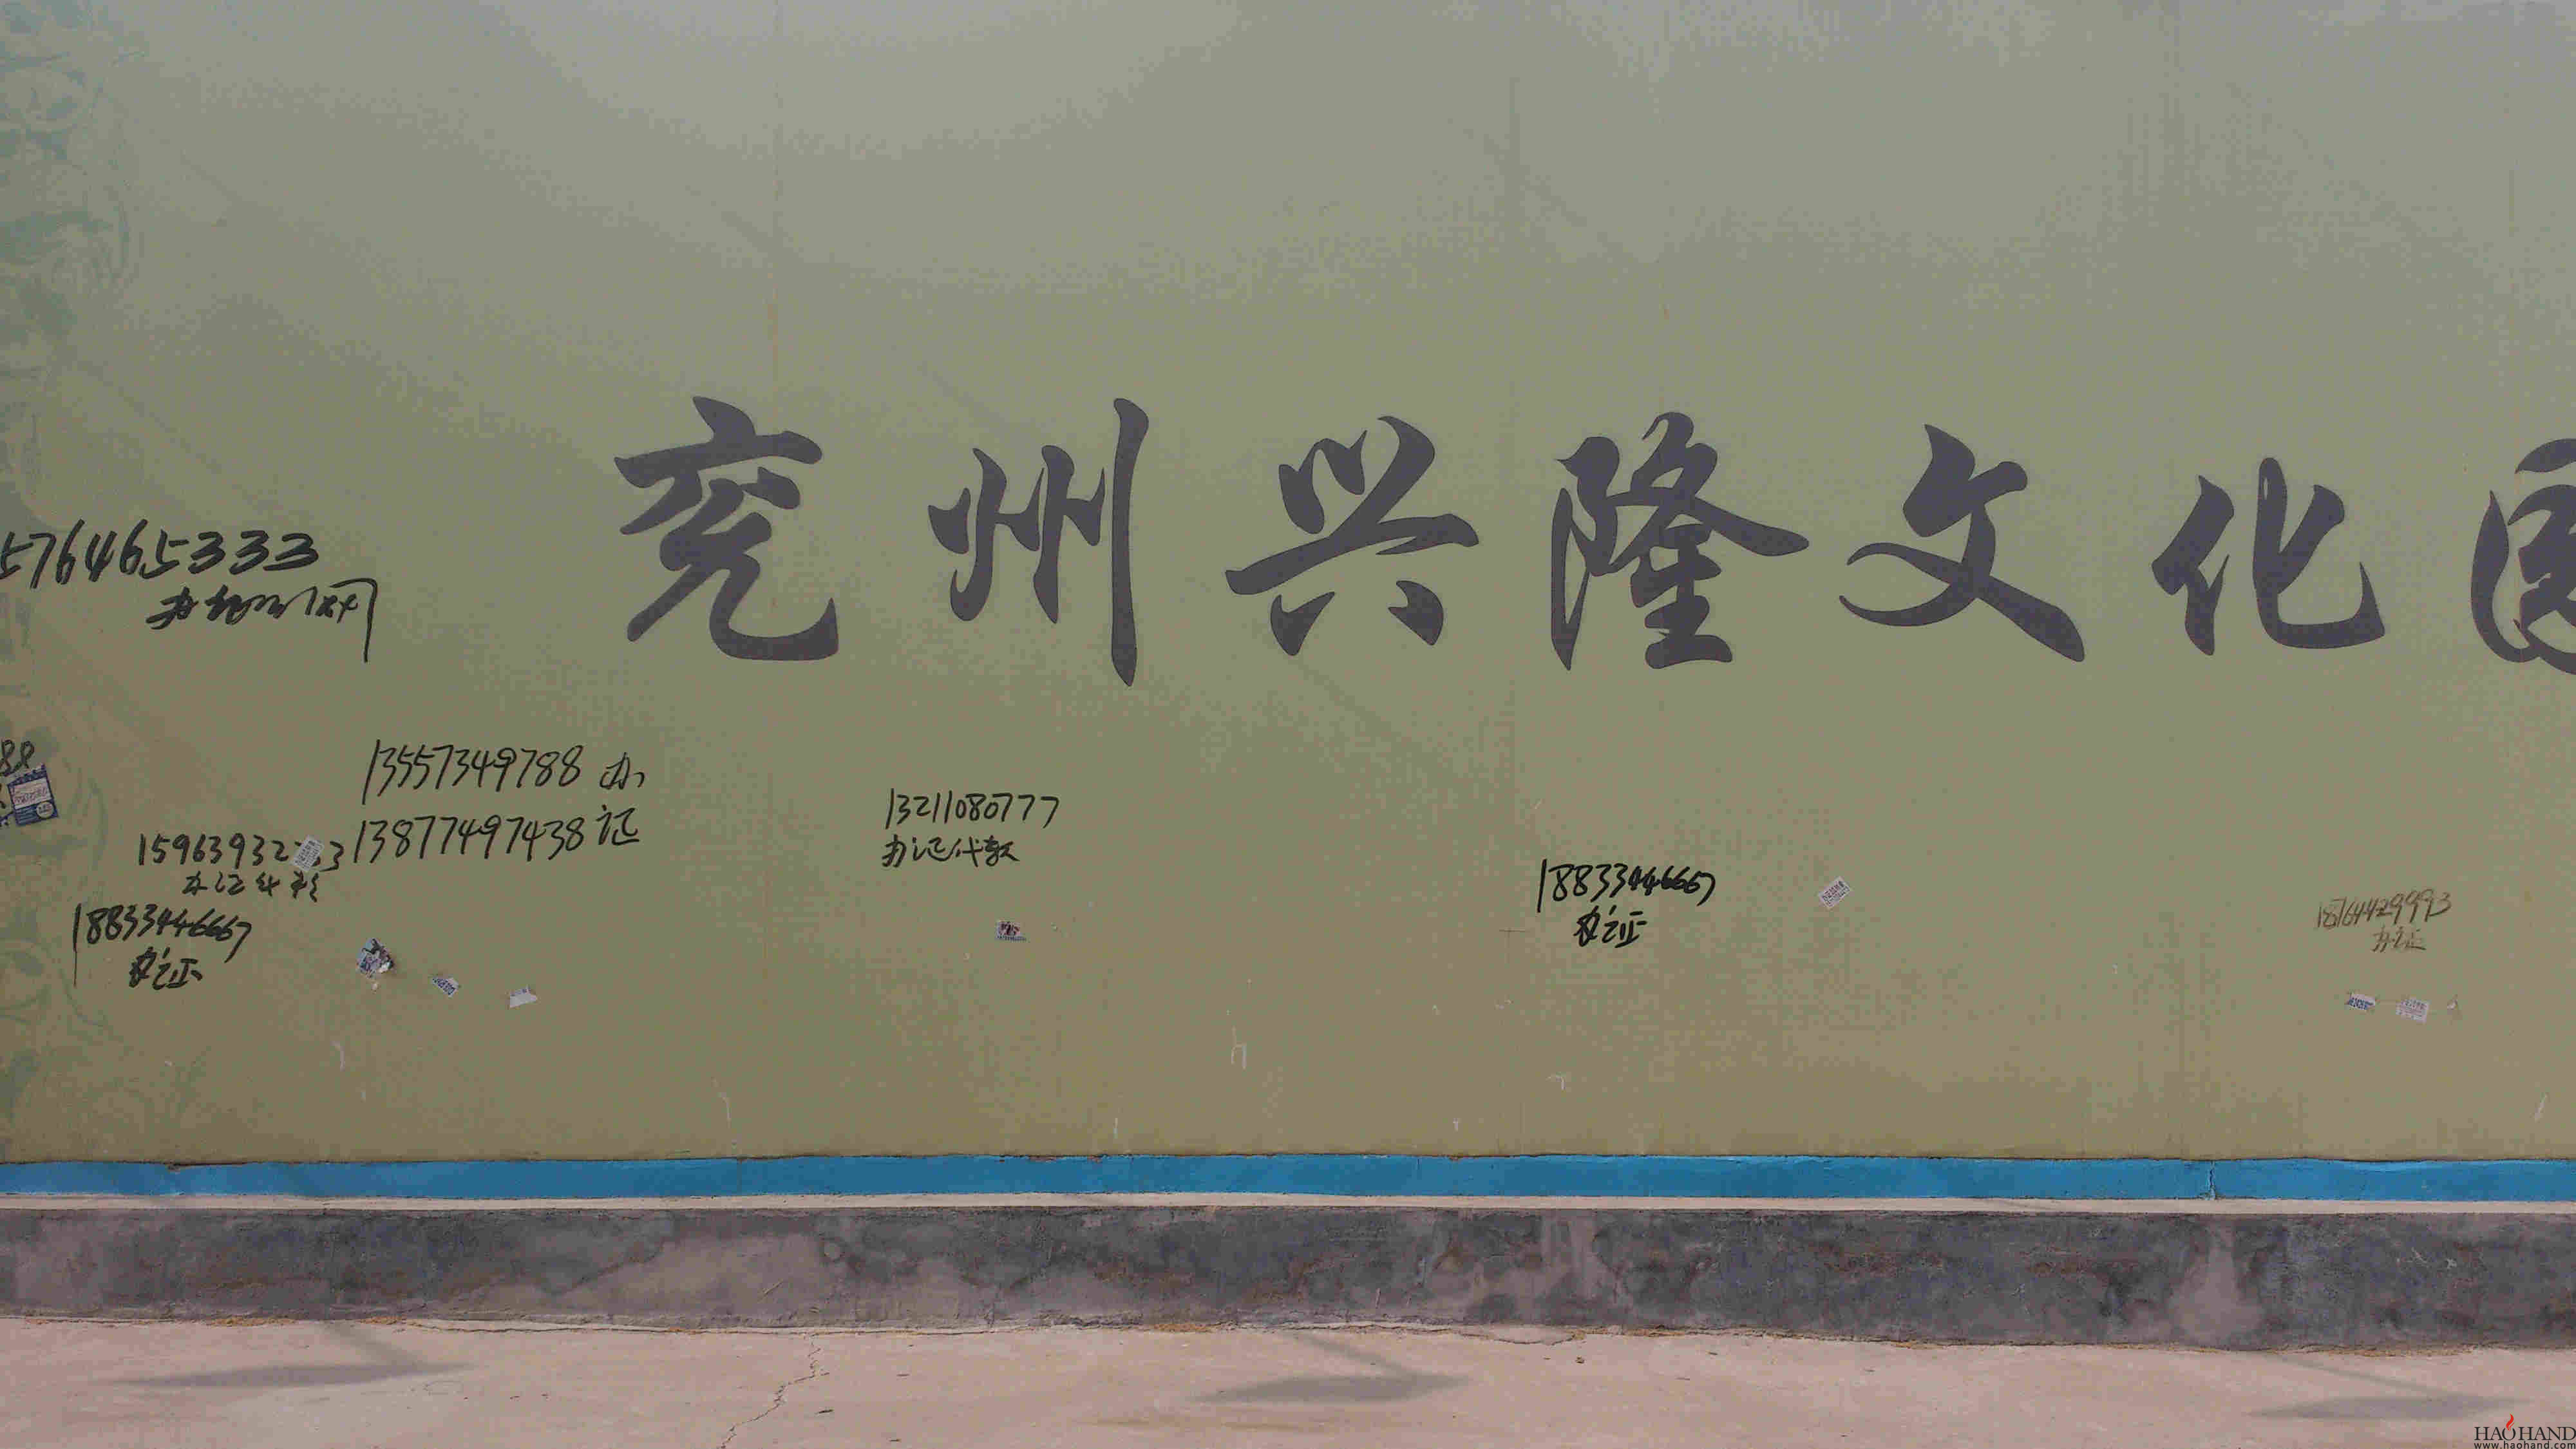 兖州兴隆文化园
576465333
13557349788 办
13877497438 证
88
13211080777
办证代款
15963932
3
18833446667
办证
18833446667
办证
18764429993
办证
HAOHAND
www.haohand.com